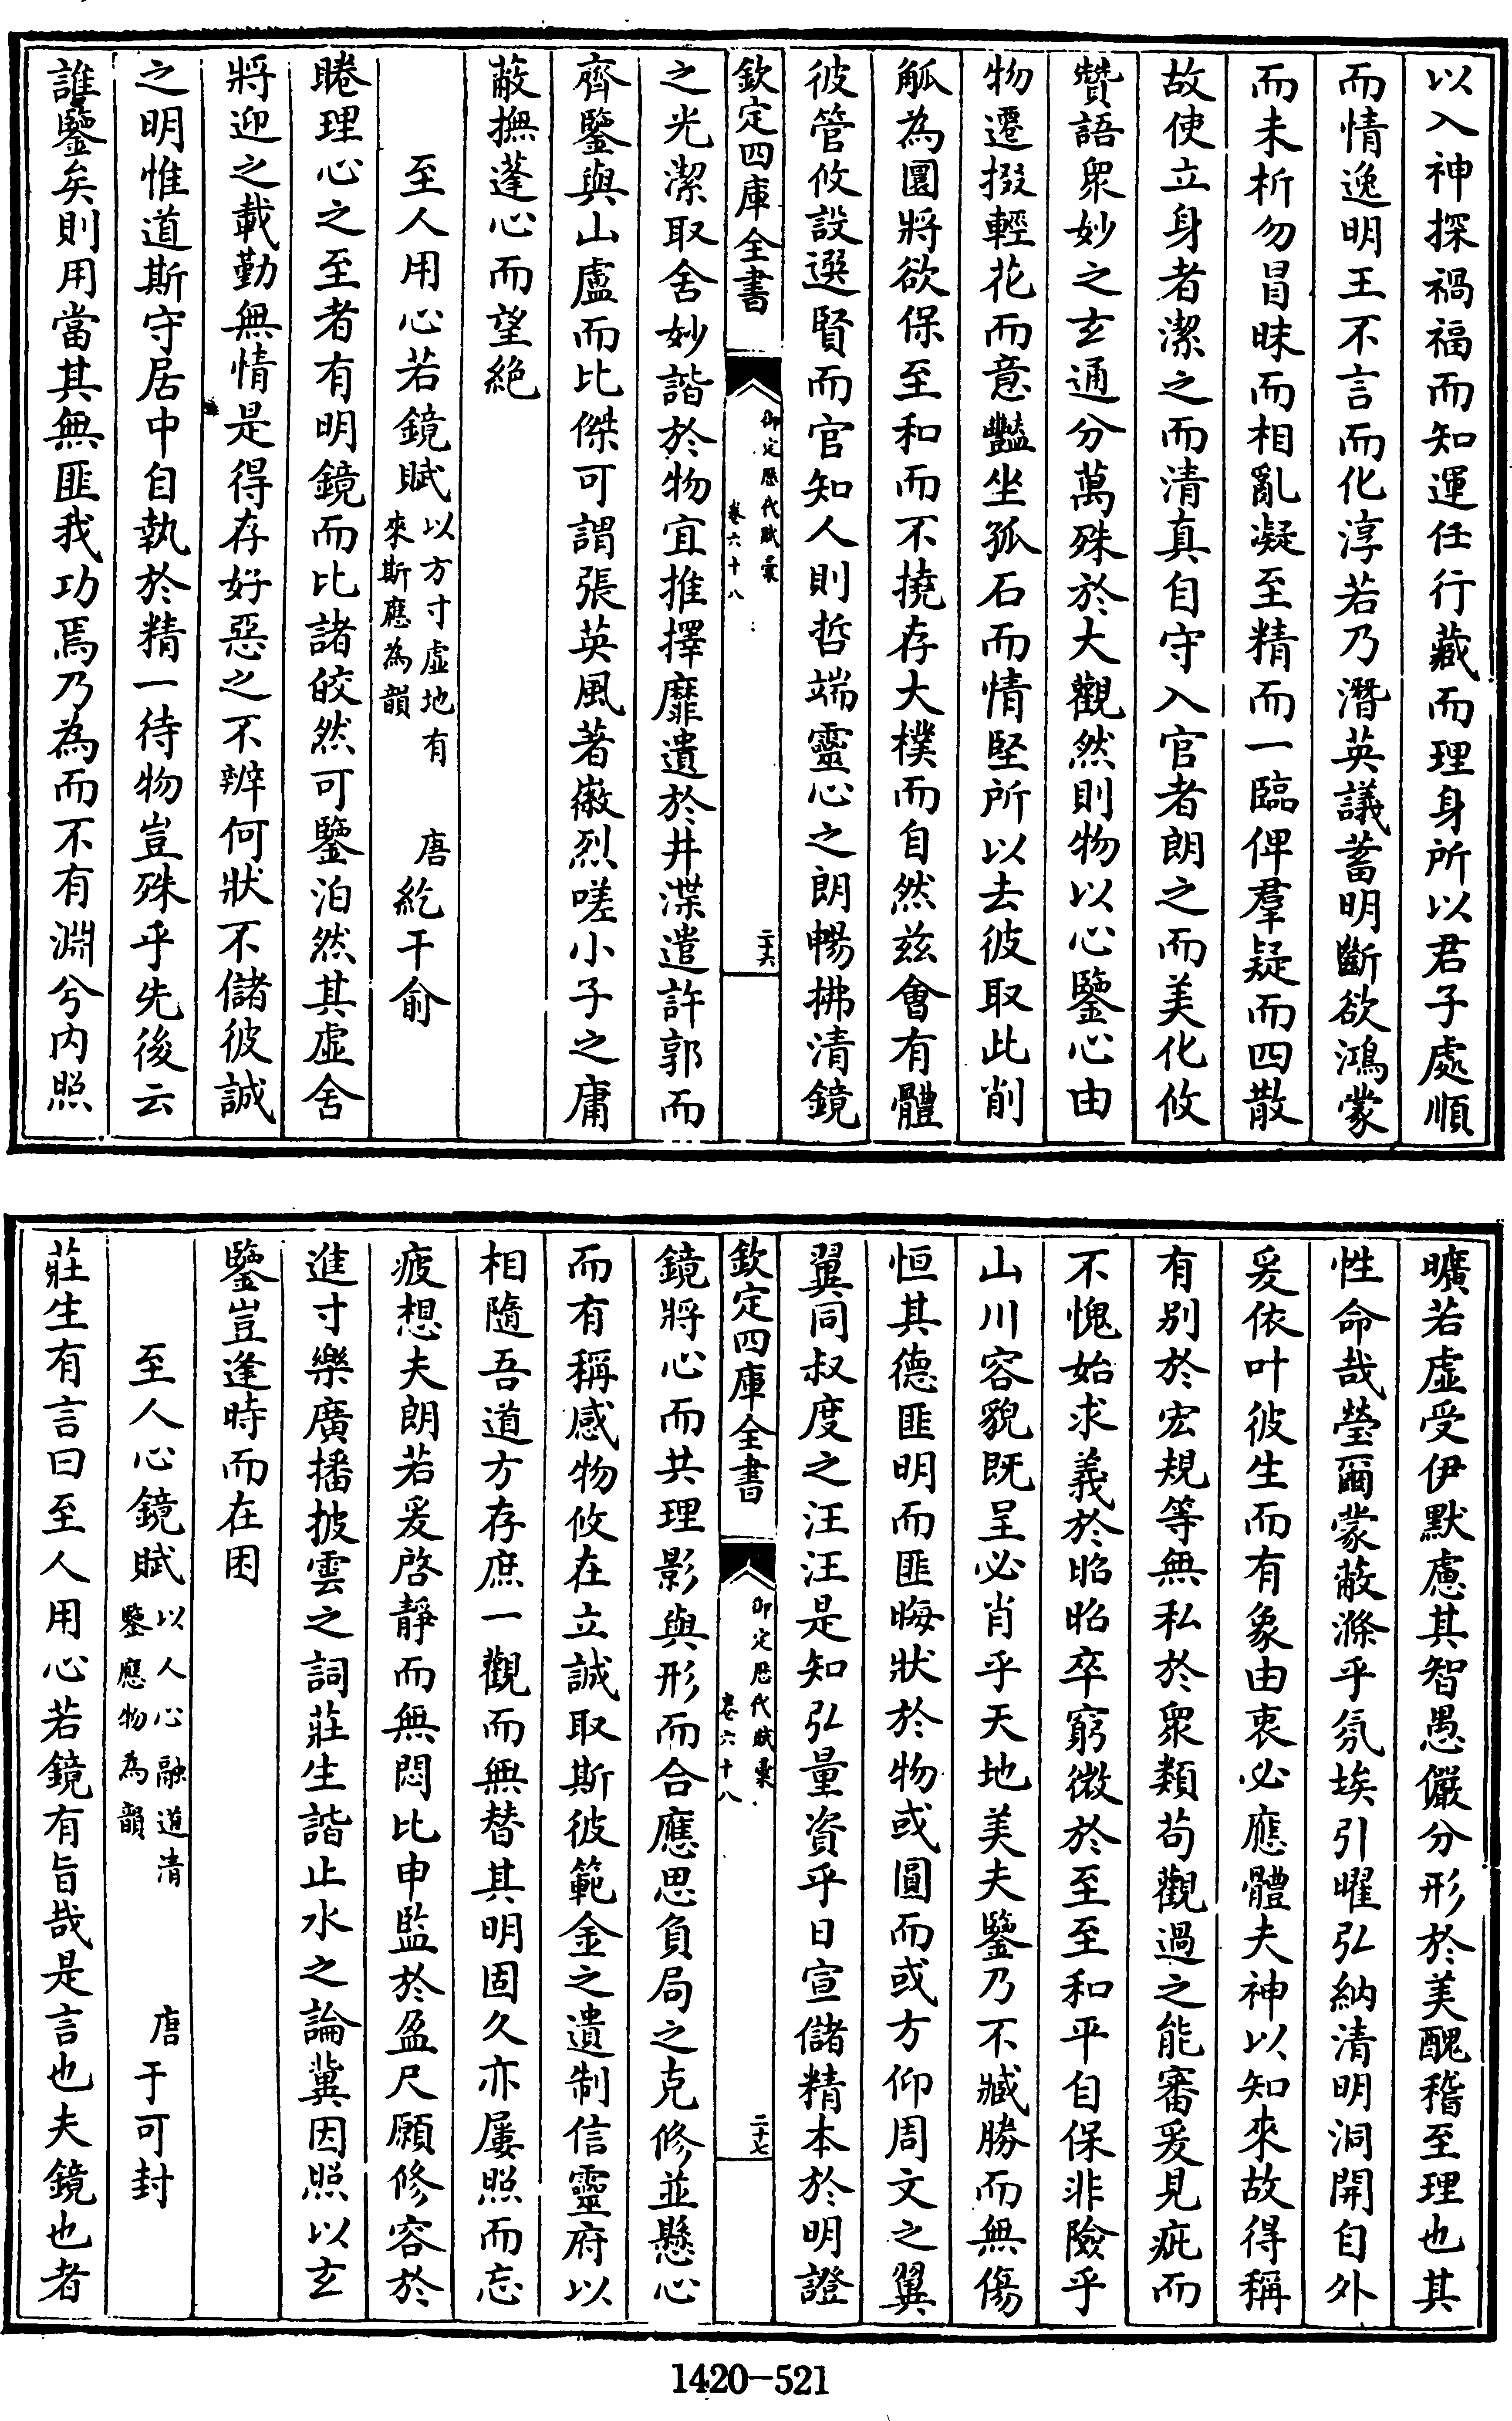 以入神探禍福而知運任行藏而理身所以君子處順
而情逸明王不言而化淳若乃潛英議蓄明斷欲鴻蒙
而未析勿冒昧而相亂凝至精而一臨俾羣疑而四散
故使立身者潔之而清真自守入官者朗之而美化攸
贊語衆妙之玄通分萬殊於大觀然則物以心鑒心由
物遷掇輕花而意豔坐孤石而情堅所以去彼取此削
觚為圜將欲保至和而不撓存大樸而自然兹會有體
彼管攸設選賢而官知人則哲端靈心之朗暢拂清鏡
欽定四庫全書
御定歴代賦彚
卷六十八
二十六
之光潔取舍妙諧於物宜推擇靡遺於井渫遣許郭而
齊鑒與山盧而比傑可謂張英風著徽烈嗟小子之庸
蔽撫蓬心而望絶
至人用心若鏡賦 以方寸虛地有來斯應為韻 唐 紇干俞
睠理心之至者有明鏡而比諸皎然可鑒泊然其虛舍
將迎之載勤無情是得存好惡之不辨何狀不儲彼誠
之明惟道斯守居中自執於精一待物豈殊乎先後云
誰鑒矣則用當其無匪我功焉乃為而不有淵兮内照
曠若虛受伊默慮其智愚儼分形於美醜稽至理也其
性命哉瑩爾蒙蔽滌乎氛埃引曜弘納清明洞開自外
爰依叶彼生而有象由衷必應體夫神以知來故得稱
有别於宏規等無私於衆類苟觀過之能審爰見疵而
不愧始求義於昭昭卒窮微於至至和平自保非險乎
山川容貌既呈必肖乎天地美夫鑒乃不臧勝而無傷
恒其德匪明而匪晦狀於物或圓而或方仰周文之翼
翼同叔度之汪汪是知弘量資乎日宣儲精本於明證
欽定四庫全書
御定歴代賦彚
卷六十八
二十七
鏡將心而共理影與形而合應思負局之克修並懸心
而有稱感物攸在立誠取斯彼範金之遺制信靈府以
相隨吾道方存庶一觀而無替其明固久亦屢照而忘
疲想夫朗若爰啓靜而無悶比申監於盈尺願修容於
進寸樂廣播披雲之詞莊生諧止水之論冀因照以玄
鑒豈逢時而在困
至人心鏡賦 以人心融道清鑒應物為韻 唐 于可封
莊生有言曰至人用心若鏡有旨哉是言也夫鏡也者
1420-521